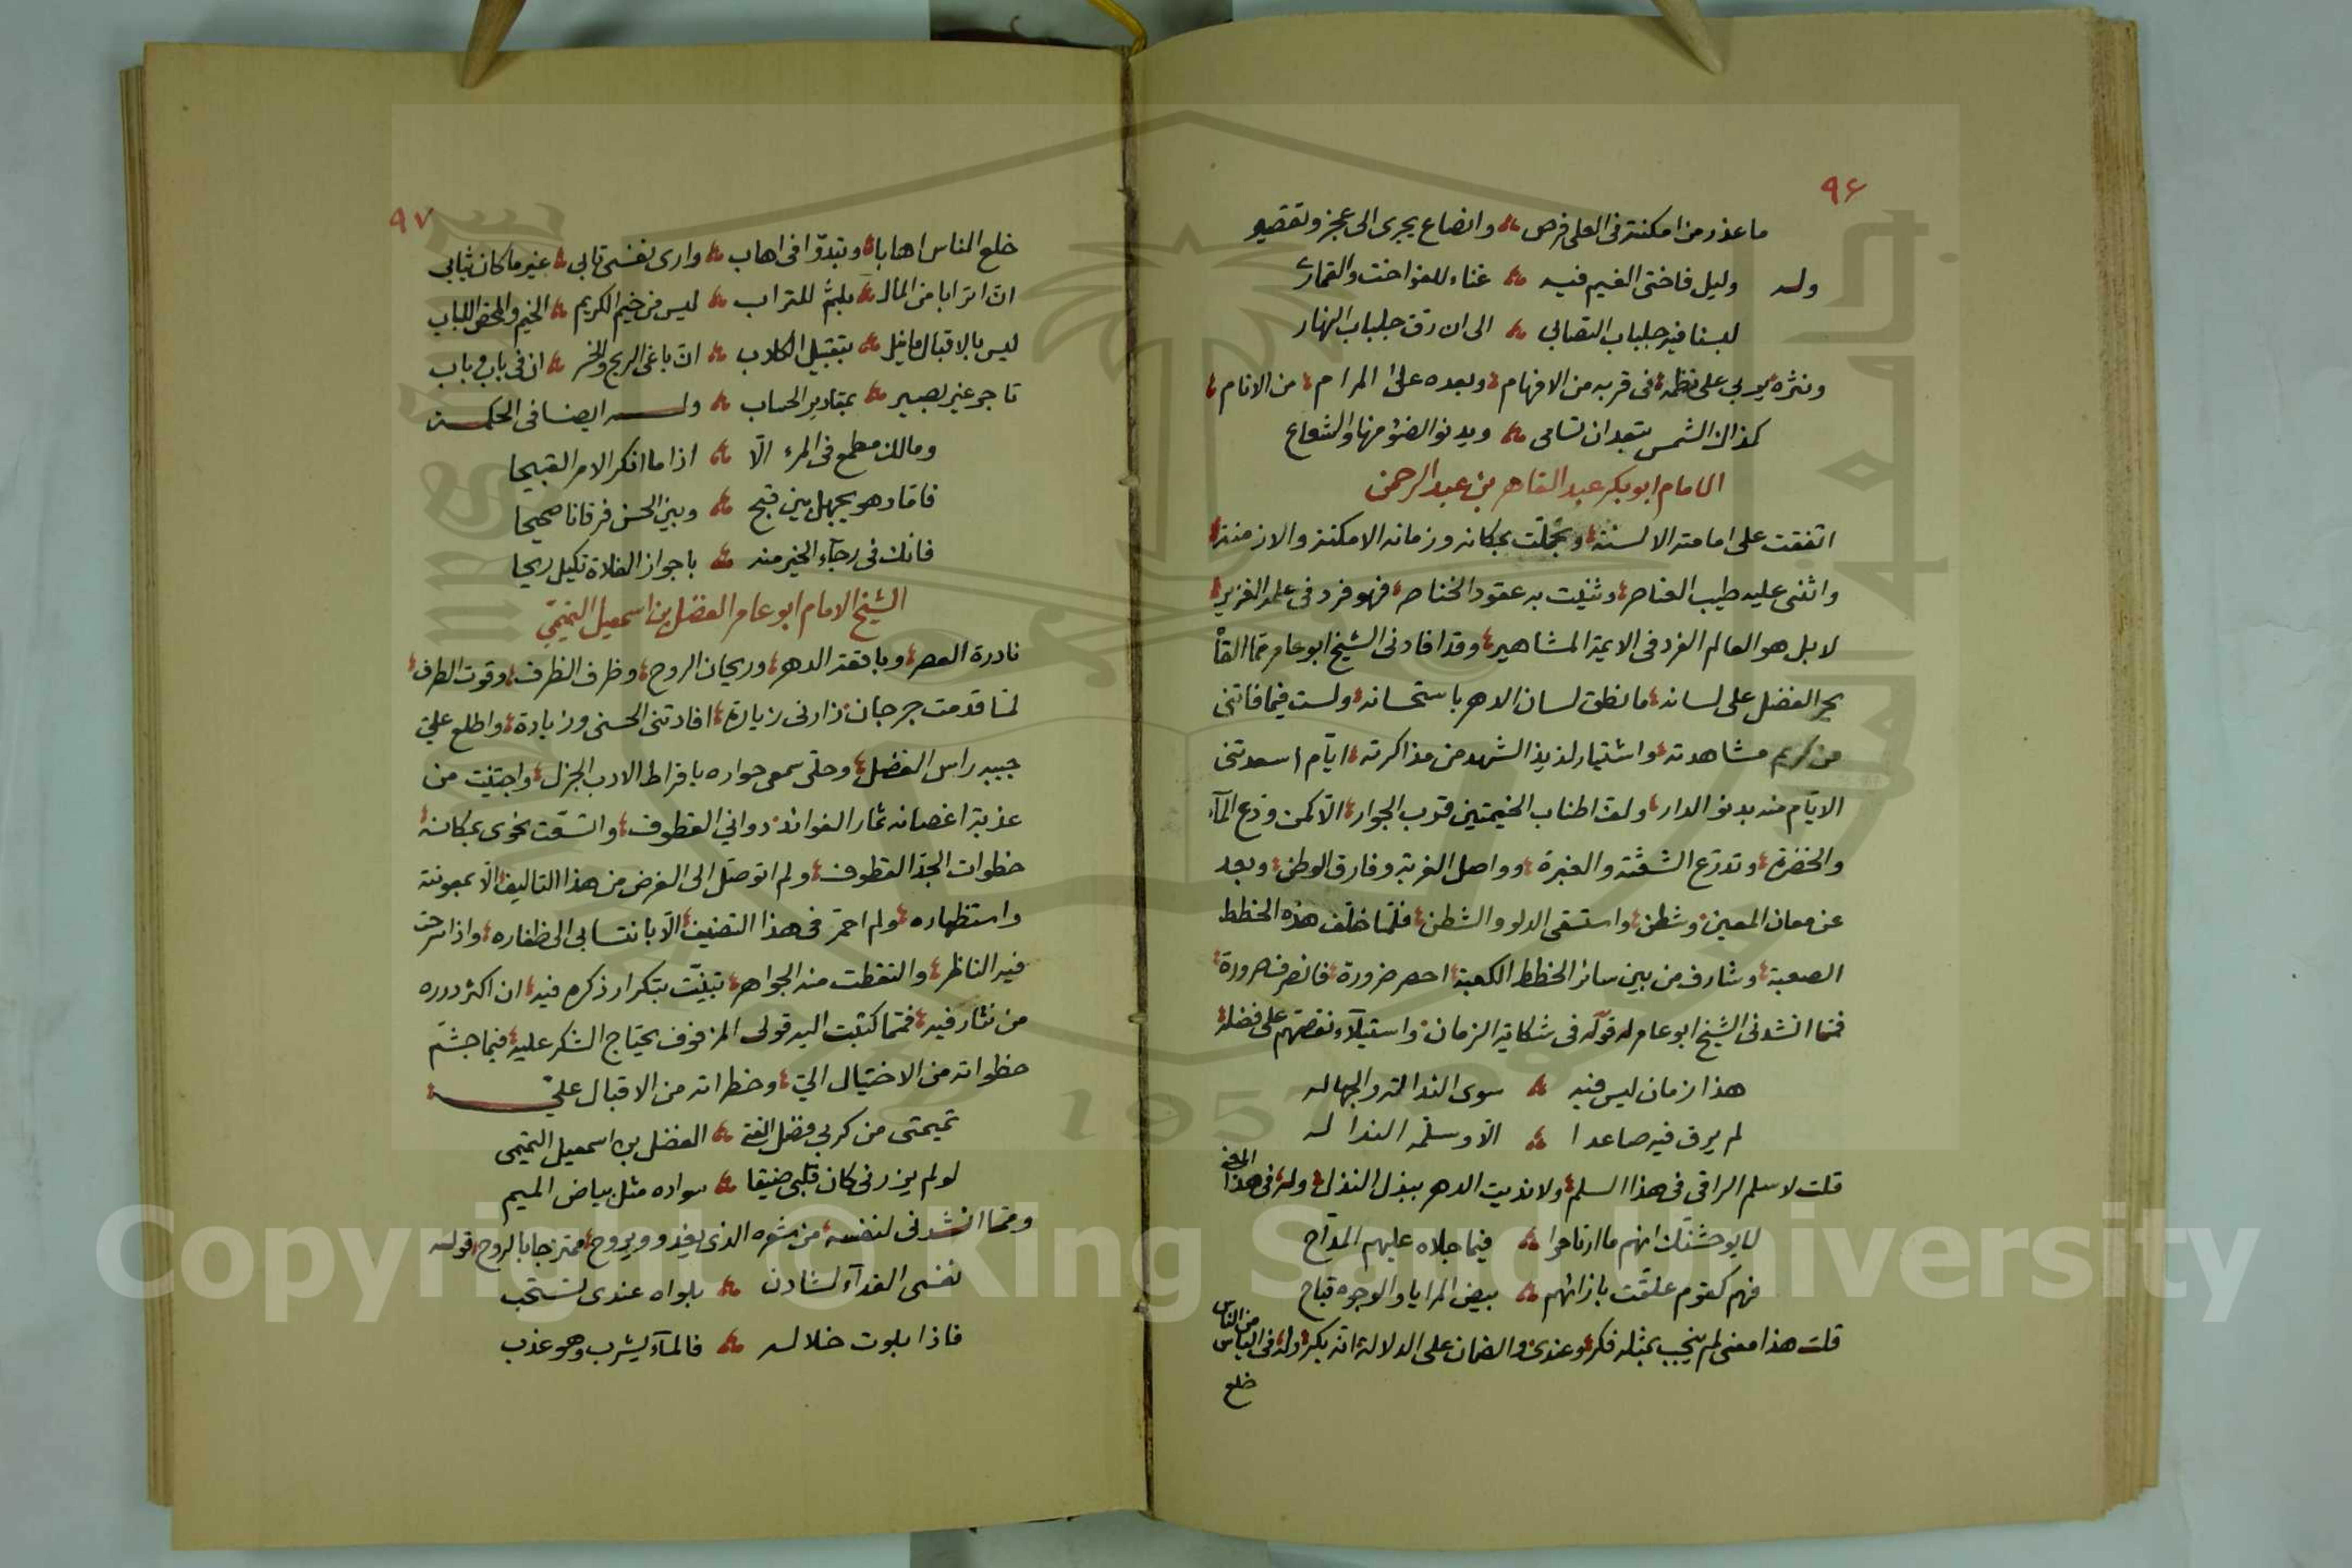 ٩٦
ما عذر من امكنته فى العلى فرص وانصاع يجرى الى عجز وتقصير
وله وليل فاختى الغيم فيه غناء للفواخت والقمارى
لبسنا فيه جلباب التصابى الى ان رق جلباب النهار
ونثره يربى على نظمه فى قربه من الافهام وبعده على المرام من الانام
كذاك الشمس تبعد ان تسامى ويدنو الضوء منها والشعاع
الامام ابو بكر عبد القاهر بن عبد الرحمن
اتفقت على امامته الالسنة وتجملت بمكانه وزمانه الامكنة والازمنة
واثنى عليه طيب العناصر وثنيت به عقود الخناصر فهو فرد فى علمه الغزير
لا بل هو العالم الفرد فى الايمة المشاهير وقد افادنى الشيخ ابو عامر مما القاه
بحر الفضل على لسانه ما نطق لسان الدهر باستحسانه ولست فيما فاتنى
من كريم مشاهدته واشتيار لذيذ الشهد من مذاكرته ايام اسعدتنى
الايام منه بدنو الدار ولف اطناب الخيمتين قرب الجوار الا كمن ودع المآء
والخضرة وتدرع الشعثة والغبرة وواصل الغربة وفارق الوطن وبعد
عن معان المعين وشطن واستسقى الدلو والشطن فلما خلف هذه الخطط
الصعبة وشارف من بين سائر الخطط الكعبة احصر ضرورة فانصرف صرورة
فمما انشدنى الشيخ ابو عامر له قوله فى شكاية الزمان واستيلآء نقصهم على فضله
هذا زمان ليس فيه سوى النذالة والجهاله
لم يرق فيه صاعدا الا وسلمه النذاله
قلت لا سلم الراقى فى هذا السلم ولا نديت الدهر ببذل النذل وله فى هذا المعنى
لا يوحشنك انهم ما ارتاحوا فيما جلاه عليهم المداح
فهم كقوم علقت بازائهم بيض المرايا والوجوه قباح
قلت هذا معنى لم ينجب بمثله فكر وعندى والضمان على الدلالة انه بكر وله فى الياس من الناس
خلع
٩٧
خلع الناس اهابا وتبدوا فى اهاب وارى نفسى تابى غير ما كان ثيابى
ان اترابا من المال بلثم للتراب ليس من خيم الكريم الخيم والمحض اللباب
ليس بالاقبال ما نيل بتقبيل الكلاب ان باغى الربح والخسر ان فى باب وباب
تاجر غير بصير بمقادير الحساب وله ايضا فى الحكمة
ومالك مطمع فى المرء الا اذا ما انكر الامر القبيحا
فاما دهو يجهل بين قبح وبين الحسن فرقانا صحيحا
فانك فى رجآء الخير منه باجواز الفلاة تكيل ريحا
الشيخ الامام ابو عامر الفضل بن اسمعيل التميمى
نادرة العصر وباقعة الدهر وريحان الروح وظرف الظرف وقوت الطرف
لما قدمت جرجان زارنى زيارة افادتنى الحسنى وزيادة واطلع على
جيبه راس الفضل وحلى سمعى حواره باقراط الادب الجزل واجتنيت من
عذبة اغصانه ثمار الفوائد دوانى القطوف واتسقت نحوى بمكانه
خطوات الجد القطوف ولم اتوصل الى الغرض من هذا التاليف الا بمعونته
واستظهاره ولم احمر فى هذا التصنيف الا بانتسابى الى ظفاره واذا سرحت
فيه الناظر والتقطت منه الجواهر تبينت بتكرار ذكره فيه ان اكثر درره
من نثار فيه فمما كتبت اليه قولى المزفوف يحتاج الشكر عليه فيما جشم
خطواته من الاختيال الى وخطراته من الاقبال على
تميمتى من كربى فضل الفتى الفضل بن اسمعيل التميمى
لو لم يزرنى كان قلبى ضيقا سواده مثل بياض الميم
ومما انشدنى لنفسه من شعره الذى يغدو ويروح ممتزجا بالروح قوله
نفسى الفدآء لشادن بلواه عندى تستحب
فاذا بلوت خلاله فالمآء يشرب وهو عذب
Copyright © King Saud University
1957